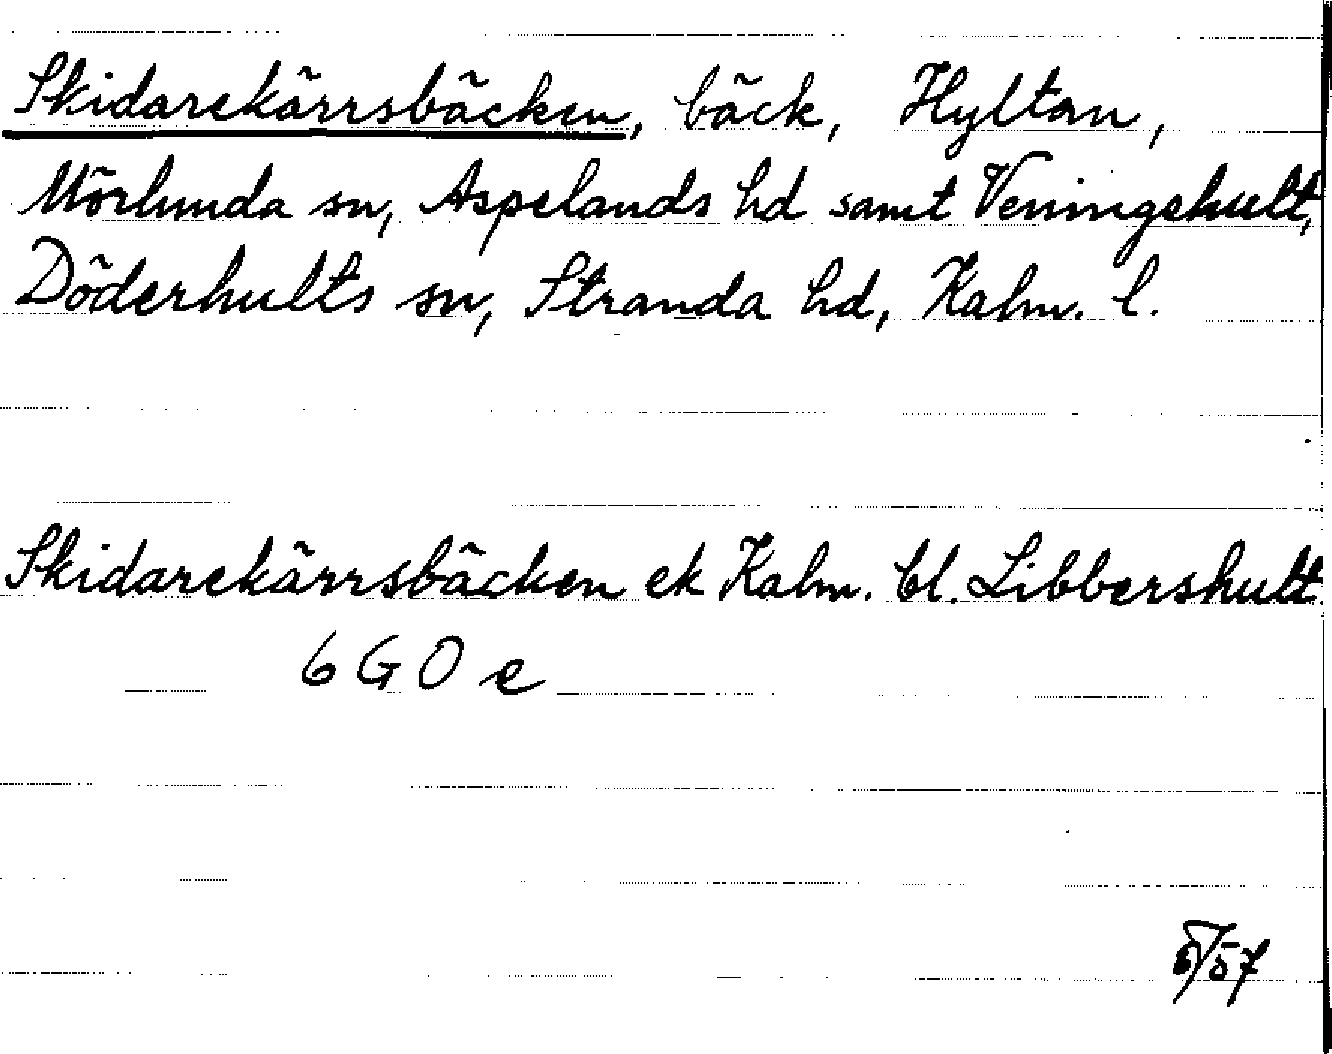 Skidarekärrsbäcken, bäck, Hyltan,
Mörlunda sn, Aspelands hd samt Veningehult,
Döderhults sn, Stranda hd, Kalm. l.
Skidarekärrsbäcken ek Kalm. bl. Libbershult
6 G O e
/57